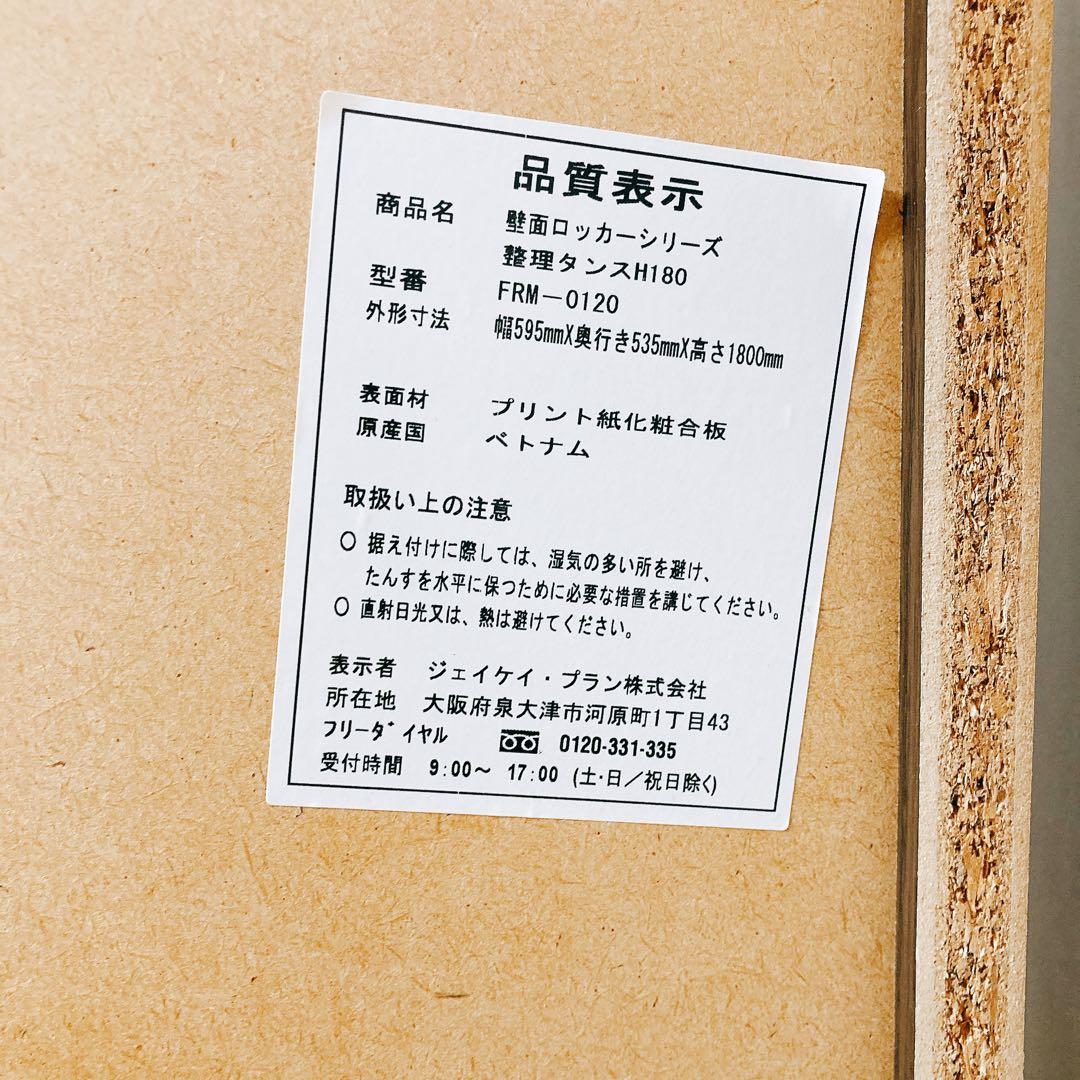 品質表示
商品名 壁面ロッカーシリーズ
整理タンスH180
型番 FRM－0120
外形寸法 幅595mmX奥行き535mmX高さ1800mm
表面材 プリント紙化粧合板
原産国 ベトナム
取扱い上の注意
○ 据え付けに際しては、湿気の多い所を避け、
たんすを水平に保つために必要な措置を講じてください。
○ 直射日光又は、熱は避けてください。
表示者 ジェイケイ・プラン株式会社
所在地 大阪府泉大津市河原町1丁目43
フリーダイヤル 0120-331-335
受付時間 9:00～ 17:00 (土・日／祝日除く)